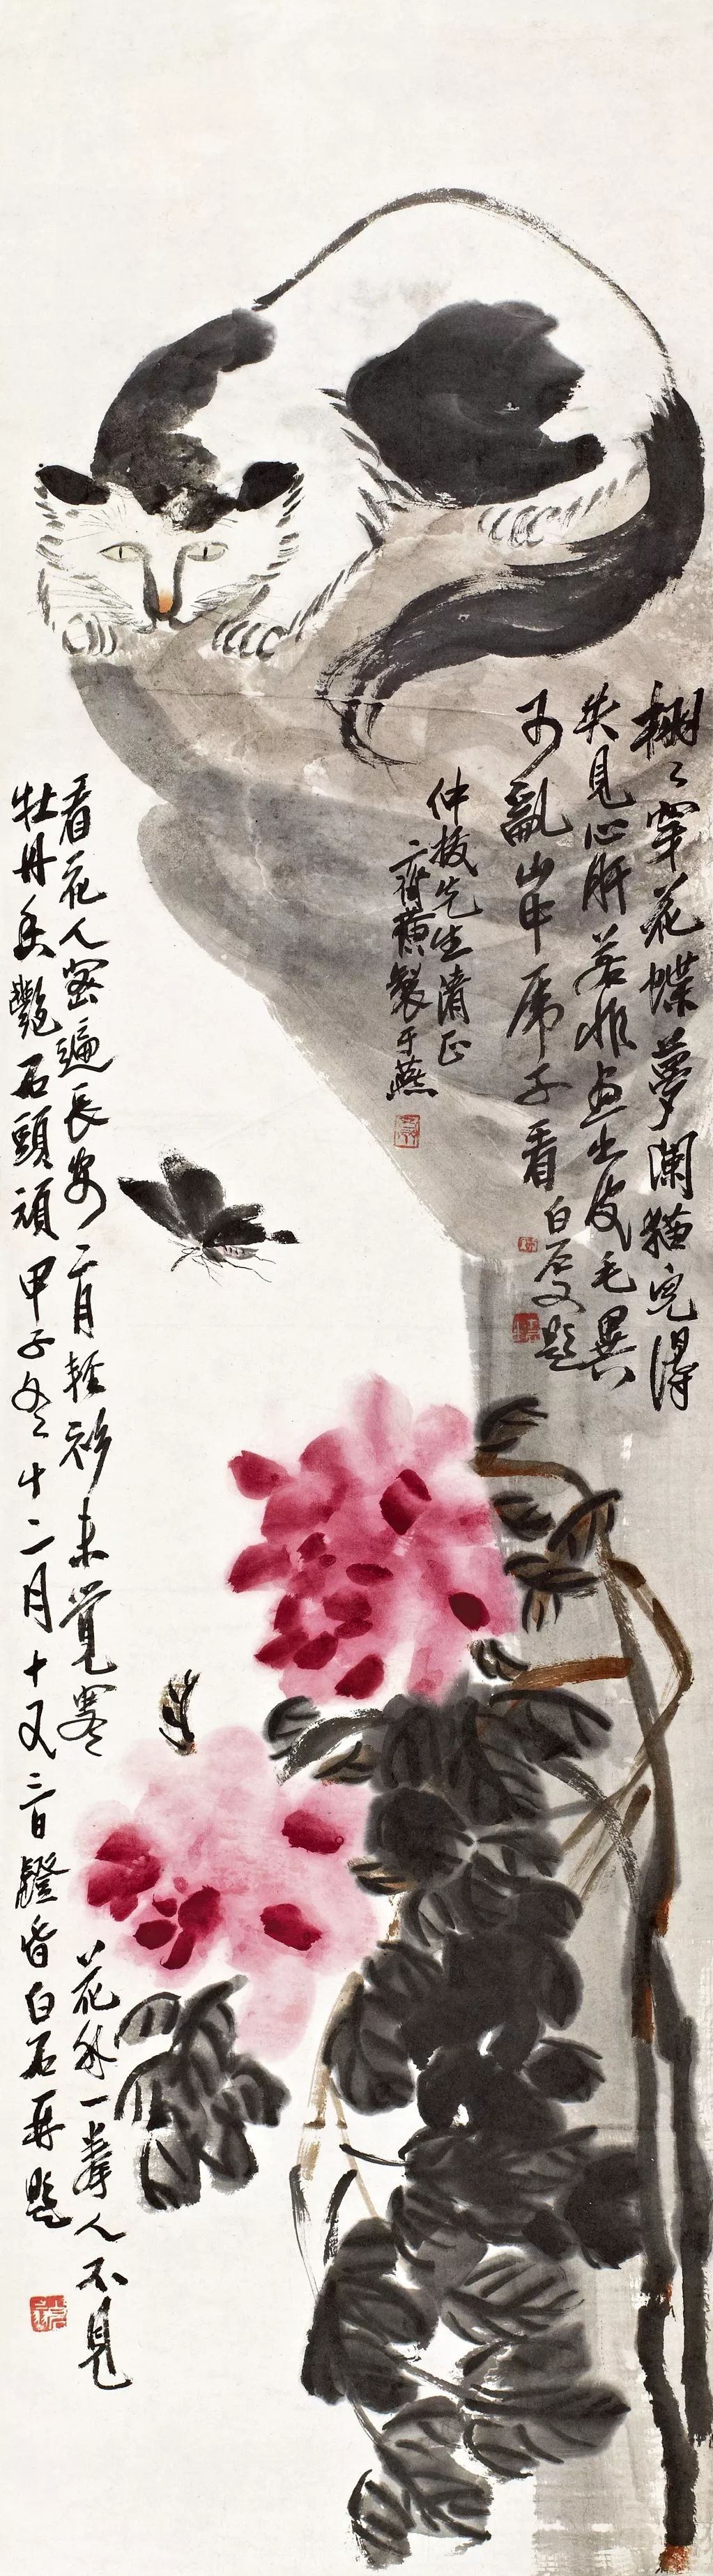 栩々穿花蝶夢闌猫児得
失見心肝若非画出皮毛異
不亂山中虎子看
白石又題
仲拔先生清正
齊璜製于燕
看花人密遍長安二月輕衫未覺寒花外一拳人不見
牡丹香艷石頭頑甲子冬十二月十又三日鐙昏白石再題